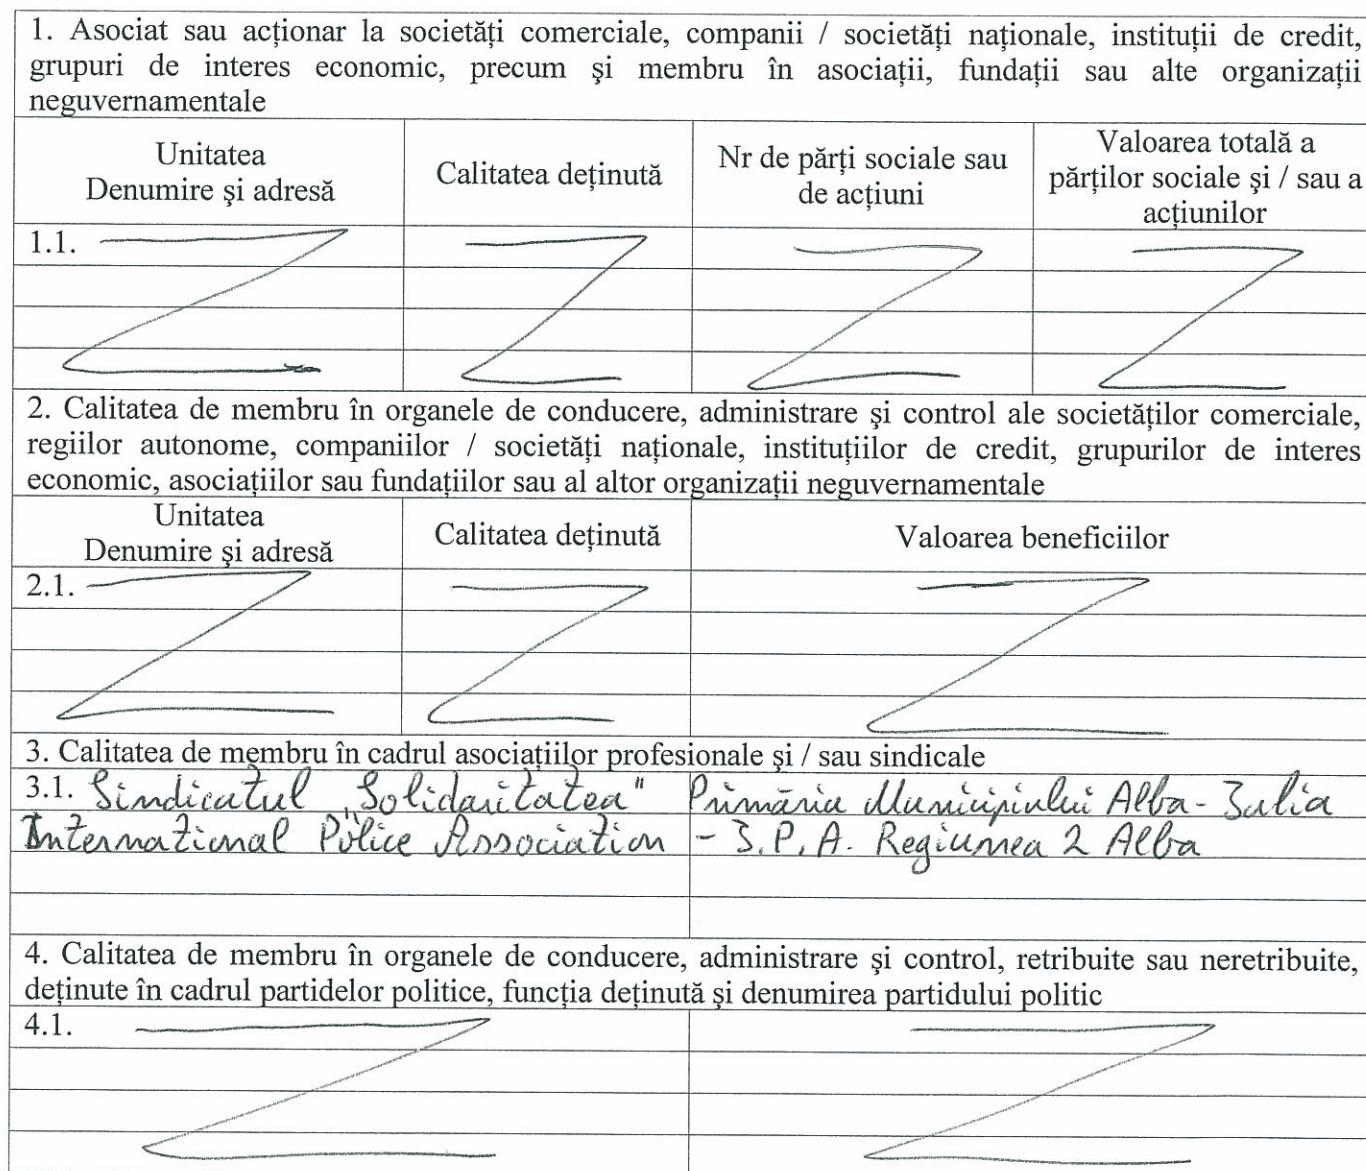 1. Asociat sau acționar la societăți comerciale, companii / societăți naționale, instituții de credit,
grupuri de interes economic, precum şi membru în asociații, fundații sau alte organizații
neguvernamentale
Unitatea
Denumire şi adresă
Calitatea deținută
Nr de părți sociale sau
de acțiuni
Valoarea totală a
părților sociale şi / sau a
acțiunilor
1.1.
2. Calitatea de membru în organele de conducere, administrare şi control ale societăților comerciale,
regiilor autonome, companiilor / societăți naționale, instituțiilor de credit, grupurilor de interes
economic, asociațiilor sau fundațiilor sau al altor organizații neguvernamentale
Unitatea
Denumire şi adresă
Calitatea deținută
Valoarea beneficiilor
2.1.
3. Calitatea de membru în cadrul asociațiilor profesionale şi / sau sindicale
3.1. Sindicatul „Solidaritatea" Primăria Municipiului Alba-Iulia
International Police Association - I.P.A. Regiunea 2 Alba
4. Calitatea de membru în organele de conducere, administrare şi control, retribuite sau neretribuite,
deținute în cadrul partidelor politice, funcția deținută şi denumirea partidului politic
4.1.